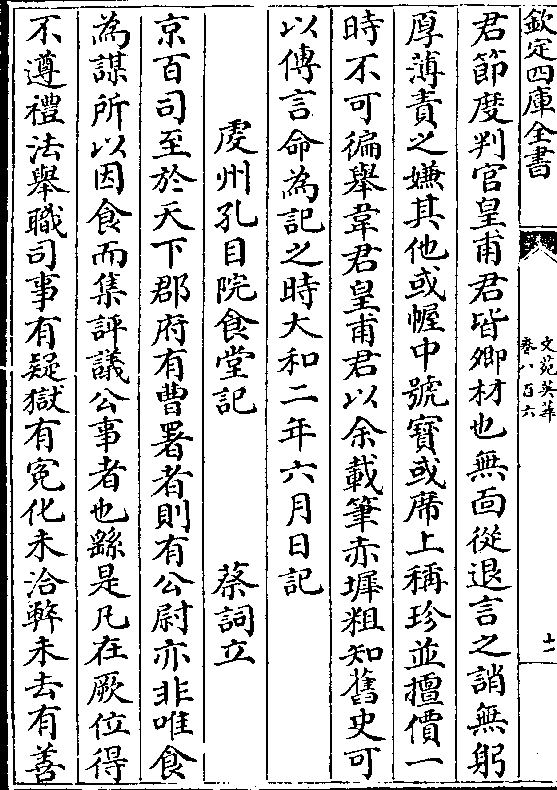 欽定四庫全書
文苑英華
卷八百六
十一
君節度判官皇甫君皆卿材也無面從退言之誚無躬
厚薄責之嫌其他或幄中號寶或席上稱珍並擅價一
時不可徧舉韋君皇甫君以余載筆赤墀粗知舊史可
以傳言命為記之時大和二年六月日記
䖍州孔目院食堂記 蔡詞立
京百司至於天下郡府有曹署者則有公㕑亦非唯食
為謀所以因食而集評議公事者也繇是凡在厥位得
不遵禮法舉職司事有疑獄有寃化未洽弊未去有善